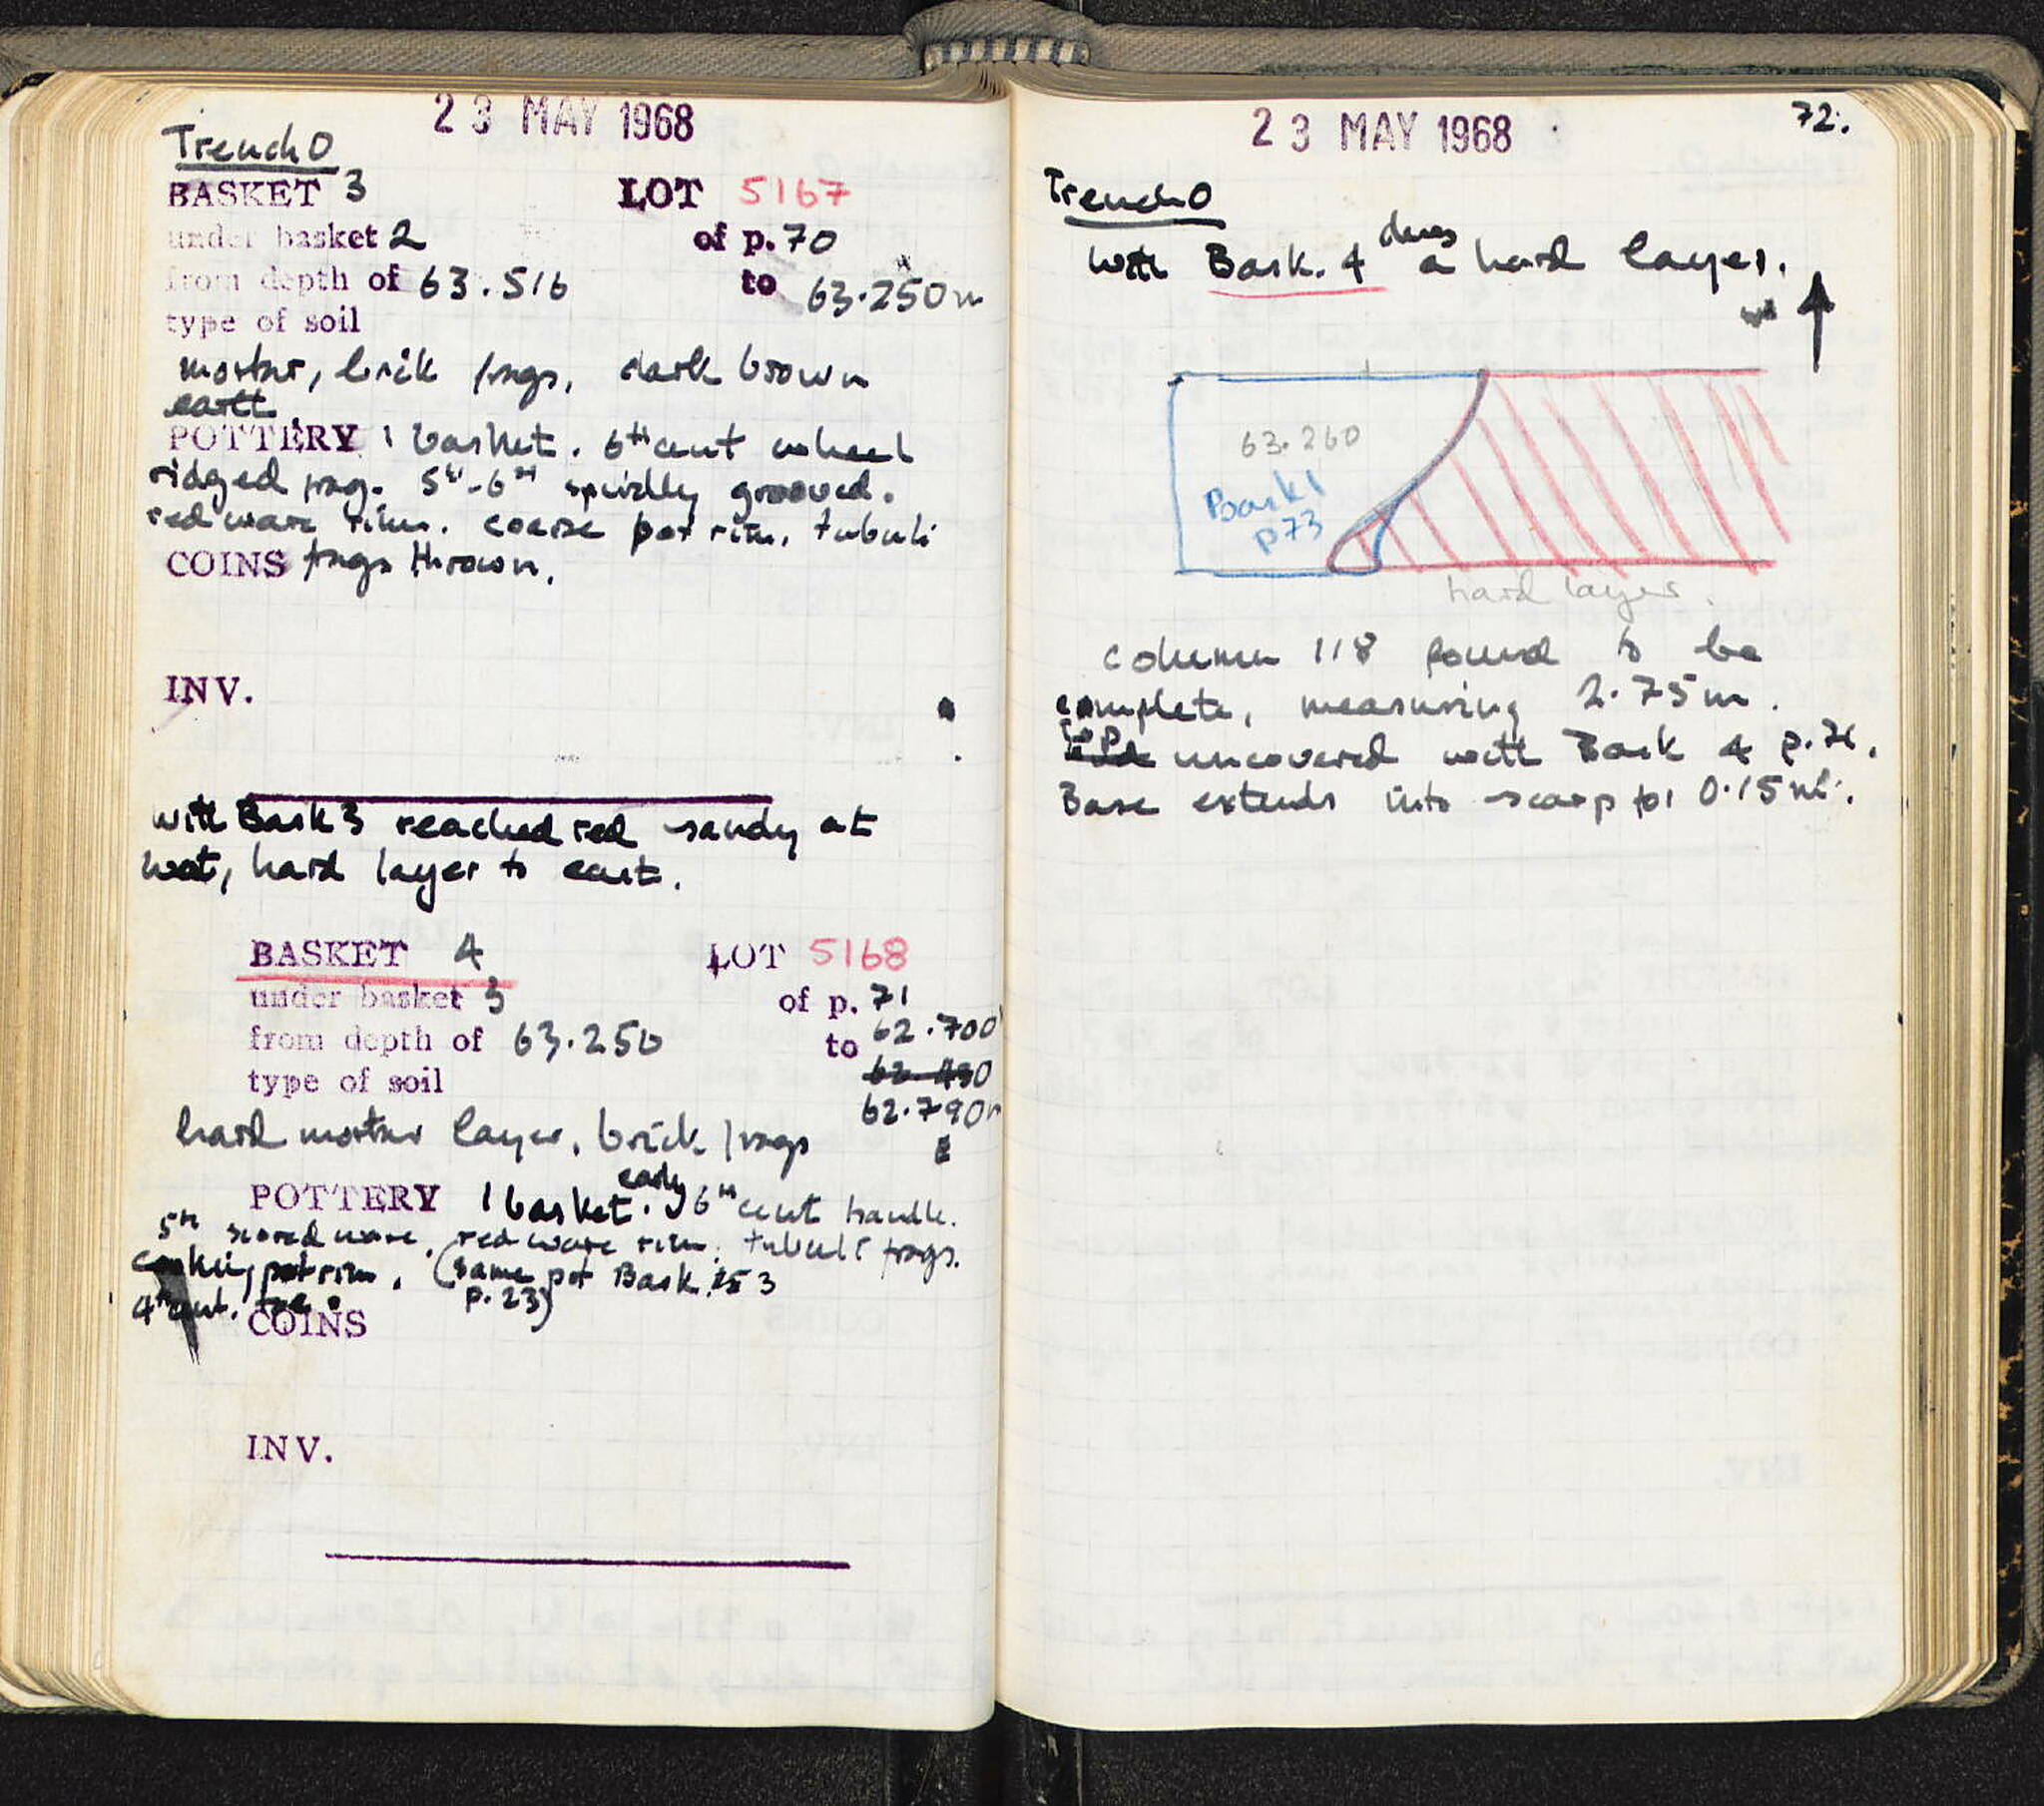 23 MAY 1968
Trench O
BASKET 3 LOT 5167
under basket 2 of p. 70
from depth of 63.516 to 63.250m
type of soil
mortar, brick frags, dark brown
earth.
POTTERY 1 basket. 6th cent wheel
ridged frag. 5th-6th spirally grooved.
red ware rim. coarse pot rim. tubuli
COINS frags thrown.
INV.
with Bask 3 reached red sandy at
west, hard layer to east.
BASKET 4 LOT 5168
under basket 3 of p. 71
from depth of 63.250 to 62.700
type of soil
62.790m
hard mortar layer, brick frags
POTTERY 1 basket. early 6th cent handle.
5th scored ware, red ware rim. tubuli frags.
cooking pot rim. (same pot Bask. 3
4th cent. toe. p. 23)
COINS
INV.
23 MAY 1968
72.
Trench O
with Bask. 4 a hard layer.
63.260
Bask 1
p73
hard layer.
column 118 found to be
complete, measuring 2.75m.
top uncovered with Bask 4 p.
Base extends into scarp for 0.15m.